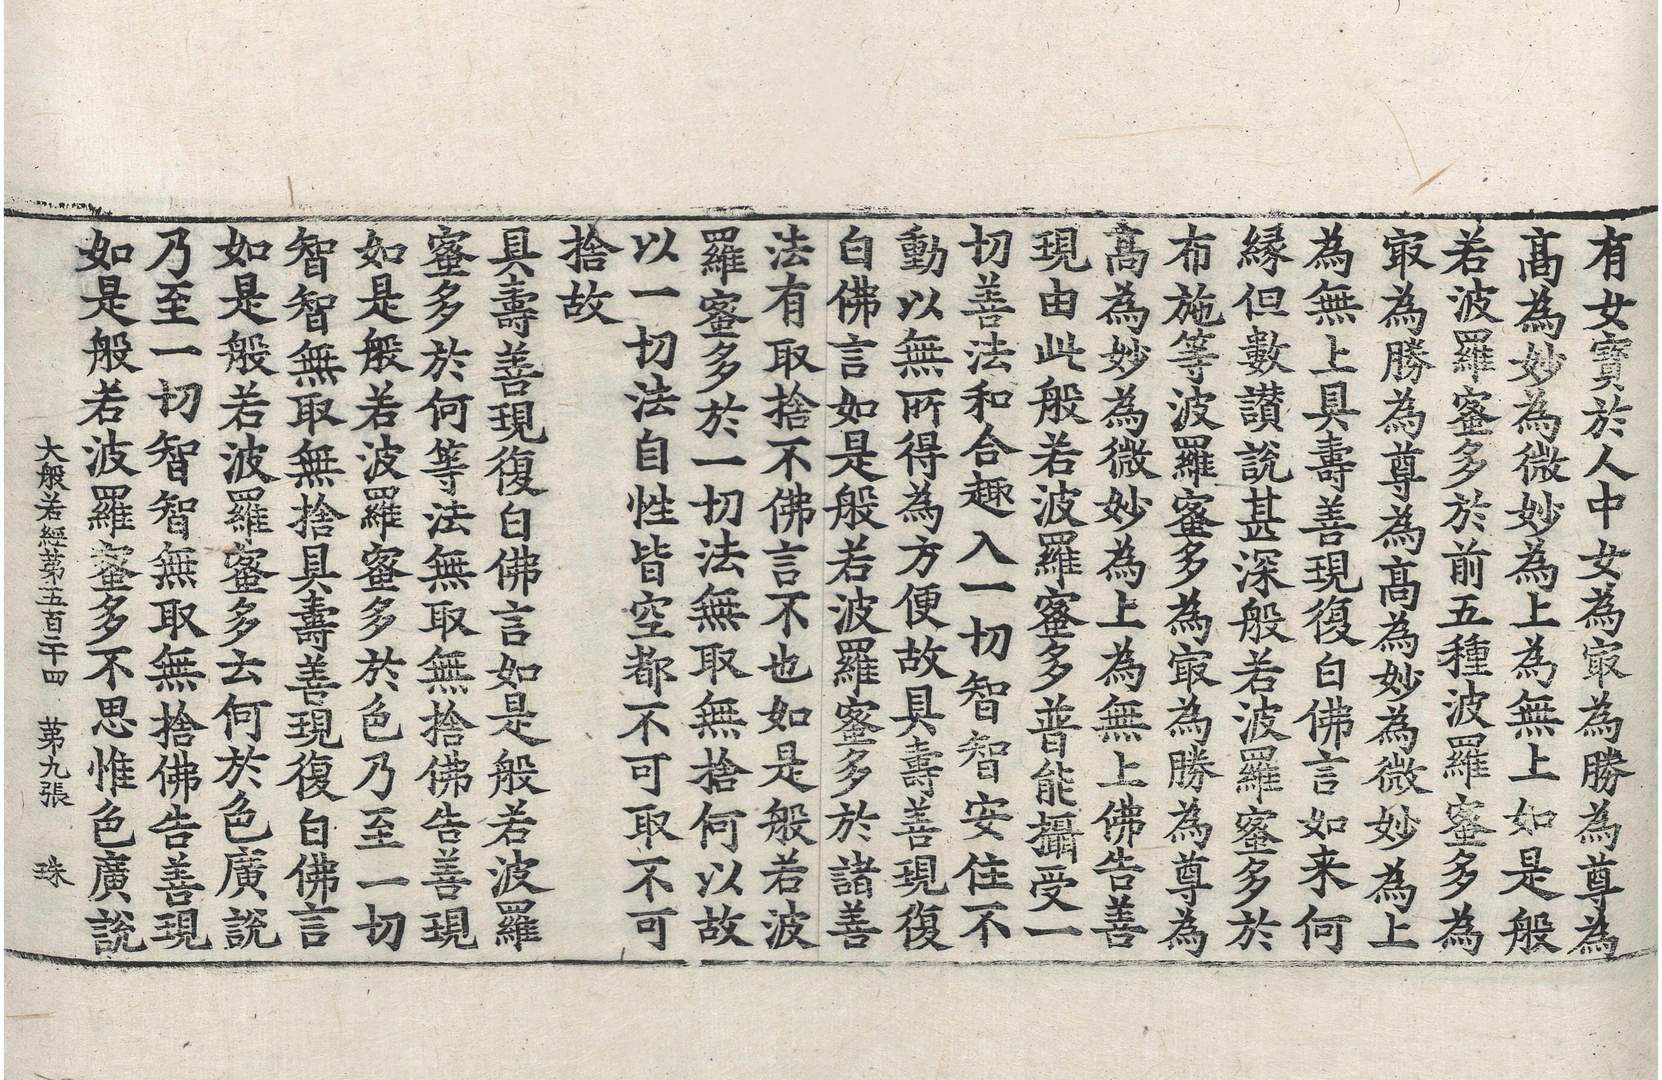 有女寶於人中女為㝡為勝為尊為
髙為妙為微妙為上為無上如是般
若波羅蜜多於前五種波羅蜜多為
㝡為勝為尊為髙為妙為微妙為上
為無上具壽善現復白佛言如来何
縁但數讃說甚深般若波羅蜜多於
布施等波羅蜜多為㝡為勝為尊為
髙為妙為微妙為上為無上佛告善
現由此般若波羅蜜多普能攝受一
切善法和合趣入一切智智安住不
動以無所得為方便故具壽善現復
白佛言如是般若波羅蜜多於諸善
法有取捨不佛言不也如是般若波
羅蜜多於一切法無取無捨何以故
以一切法自性皆空都不可取不可
捨故
具壽善現復白佛言如是般若波羅
蜜多於何等法無取無捨佛告善現
如是般若波羅蜜多於色乃至一切
智智無取無捨具壽善現復白佛言
如是般若波羅蜜多云何於色廣說
乃至一切智智無取無捨佛告善現
如是般若波羅蜜多不思惟色廣說
大般若經苐五百二十四　苐九張　珠